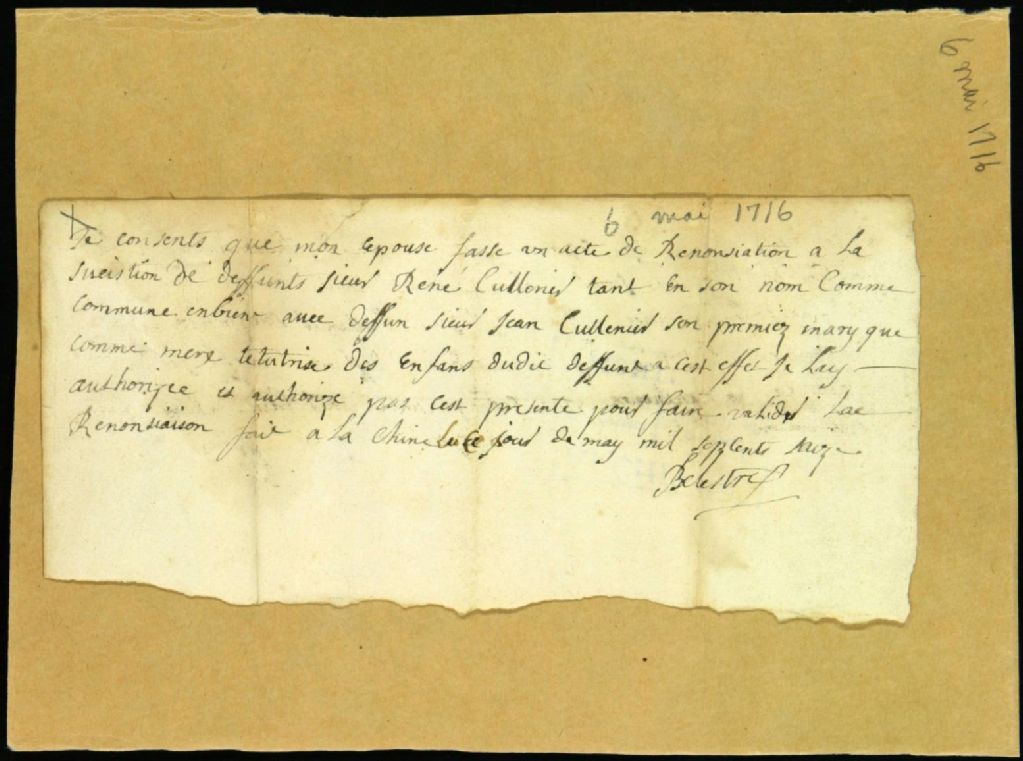 6 mai 1716
6 mai 1716
Je consents que mon Epouse fasse un acte de Renonsiation a la
sucistion de deffunts sieur René Cullerier tant En son nom Comme
commune enbien avec deffun sieur Jean Cullerier son premiez mary que
comme mere tetutrise des Enfans dudit deffunt a cest effet Je Lay
authorizee et authorize par cest presente pour faire valider lae
Renonsiaison fait a la Chine le 6e jour de may mil septcents seize
Belestre